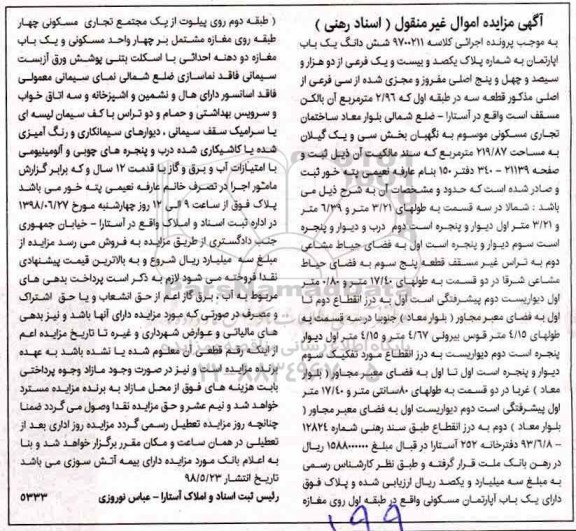 آگهی مزایده اموال غیر منقول ( اسناد رهنی )
به موجب پرونده اجرائی کلاسه ۹۷۰۰۲۱۱ شش دانگ یک باب
آپارتمان به شماره پلاک یکصد و بیست و یک فرعی از دو هزار و
سیصد و چهل و پنج اصلی مفروز و مجزی شده از سی فرعی از
اصلی مذکور قطعه سه در طبقه اول که ۲/۹۶ مترمربع آن بالکن
مسقف است واقع در آستارا – ضلع شمالی بلوار معاد ساختمان
تجاری مسکونی موسوم به نگهبان بخش سی و یک گیلان
به مساحت ۲۱۹/۸۷ مترمربع که سند مالکیت آن ذیل ثبت و
صفحه ۲۱۱۳۹ – ۳۴۰ دفتر ۱۵۰ بنام عارفه نعیمی پته خور ثبت
و صادر شده است که حدود و مشخصات آن به شرح ذیل می
باشد : شمالا در سه قسمت به طولهای ۳/۲۱ متر و ۶/۳۹ متر
و ۳/۲۱ متر اول دیوار و پنجره است دوم درب و دیوار و پنجره
است سوم دیوار و پنجره است اول به فضای حیاط مشاعی
دوم به تراس غیر مسقف قطعه پنج سوم به فضای حیاط
مشاعی شرقا در دو قسمت به طولهای ۱۷/۴۰ متر و ۰/۸۰ متر
اول دیواریست دوم پیشرفتگی است اول به درز انقطاع دوم تا
اول به فضای معبر مجاور ( بلوار معاد ) جنوبا در سه قسمت به
طولهای ۴/۱۵ متر قوس بیرونی ۴/۶۷ متر و ۴/۱۵ متر اول دیوار
پنجره است دوم دیواریست به درز انقطاع مورد تفکیک سوم
دیوار و پنجره است اول تا اول به فضای معبر مجاور ( بلوار
معاد ) غربا در دو قسمت به طولهای ۸۰سانتی متر و ۱۷/۴۰ متر
اول پیشرفتگی است دوم دیواریست اول به فضای معبر مجاور (
بلوار معاد ) دوم به درز انقطاع طبق سند رهنی شماره ۱۲۸۲۴
– ۹۳/۶/۸ دفترخانه ۲۵۲ آستارا در قبال مبلغ ۱۵۸۸۰۰۰۰۰۰ ریال
در رهن بانک ملت قرار گرفته و طبق نظر کارشناس رسمی
به مبلغ سه میلیارد و یکصد ریال ارزیابی شده و پلاک فوق
دارای یک باب آپارتمان مسکونی واقع در طبقه اول روی مغازه
( طبقه دوم روی پیلوت از یک مجتمع تجاری مسکونی چهار
طبقه روی مغازه مشتمل بر چهار واحد مسکونی و یک باب
مغازه دو دهنه احداثی با اسکلت بتنی پوشش ورق آزبست
سیمانی فاقد نماسازی ضلع شمالی نمای سیمانی معمولی
فاقد آسانسور دارای هال و نشمین و آشپزخانه و سه اتاق خواب
و سرویس بهداشتی و حمام و دو تراس با کف سیمان لیسه ای
یا سرامیک سقف سیمانی ، دیوارهای سیمانکاری و رنگ آمیزی
شده یا کاشیکاری شده درب و پنجره های چوبی و آلومینیومی
با امتیازات آب و برق و گاز با قدمت ۱۲ سال و که برابر گزارش
مامور اجرا در تصرف خانم عارفه نعیمی پته خور می باشد
پلاک فوق از ساعت ۹ الی ۱۲ روز چهارشنبه مورخ ۱۳۹۸/۰۶/۲۷
در اداره ثبت اسناد و املاک واقع در آستارا – خیابان جمهوری
جنب دادگستری از طریق مزایده به فروش می رسد مزایده از
مبلغ سه میلیارد ریال شروع و به بالاترین قیمت پیشنهادی
نقدا فروخته می شود لازم به ذکر است پرداخت بدهی های
مربوط به آب ، برق گاز اعم از حق انشعاب و یا حق اشتراک
و مصرف در صورتی که مورد مزایده دارای آنها باشد و نیز بدهی
های مالیاتی و عوارض شهرداری و غیره تا تاریخ مزایده اعم
از اینکه رقم قطعی آن معلوم شده یا نشده باشد به عهده
برنده مزایده است و نیز در صورت وجود مازاد وجوه پرداختی
بابت هزینه های فوق از محل مازاد به برنده مزایده مسترد
خواهد شد و نیم عشر و حق مزایده نقدا وصول می گردد ضمنا
چنانچه روز مزایده تعطیل رسمی گردد مزایده روز اداری بعد از
تعطیلی در همان ساعت و مکان مقرر برگزار خواهد شد و بنا
به اعلام بانک مورد مزایده دارای بیمه آتش سوزی می باشد
تاریخ انتشار ۹۸/۵/۲۳
رئیس ثبت اسناد و املاک آستارا – عباس نوروزی ۵۳۳۳
۱۹۹